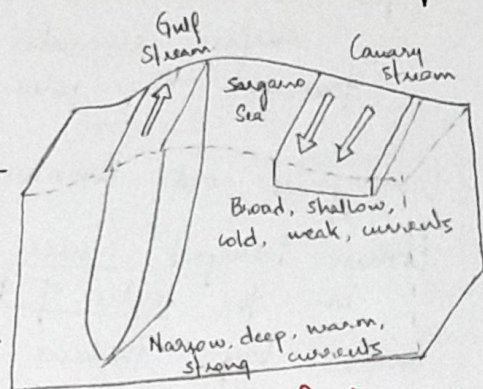 Gulf
Stream
Sargasso
Sea
Canary
stream
Broad, shallow,
cold, weak, currents
Narrow, deep, warm,
strong currents